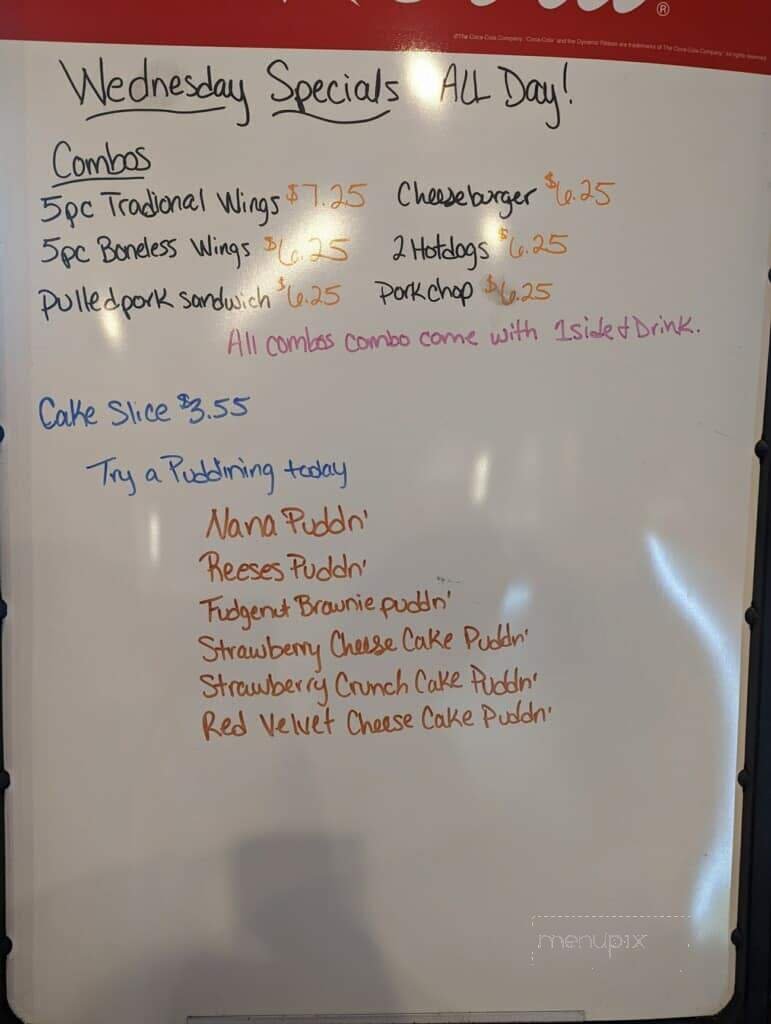 ©The Coca-Cola Company. "Coca-Cola" and the Dynamic Ribbon are trademarks of The Coca-Cola Company. All rights reserved.
Wednesday Specials ALL Day!
Combos
5pc Tradional Wings $7.25 Cheeseburger $6.25
5pc Boneless Wings $6.25 2 Hotdogs $6.25
Pulledpork sandwich $6.25 Porkchop $6.25
All combos combo come with 1side & Drink.
Cake Slice $3.55
Try a Puddining today
Nana Puddn'
Reeses Puddn'
Fudgenut Brownie puddn'
Strawberry Cheese Cake Puddn'
Strawberry Crunch Cake Puddn'
Red Velvet Cheese Cake Puddn'
menupix